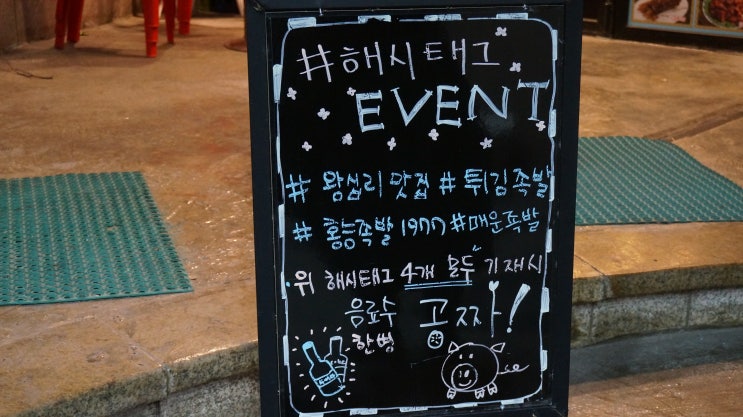 #해시태그
EVENT
# 왕십리 맛집 # 튀김족발
# 홍능족발 1977 #매운족발
위 해시태그 4개 모두 기재시
음료수 공짜!
한병